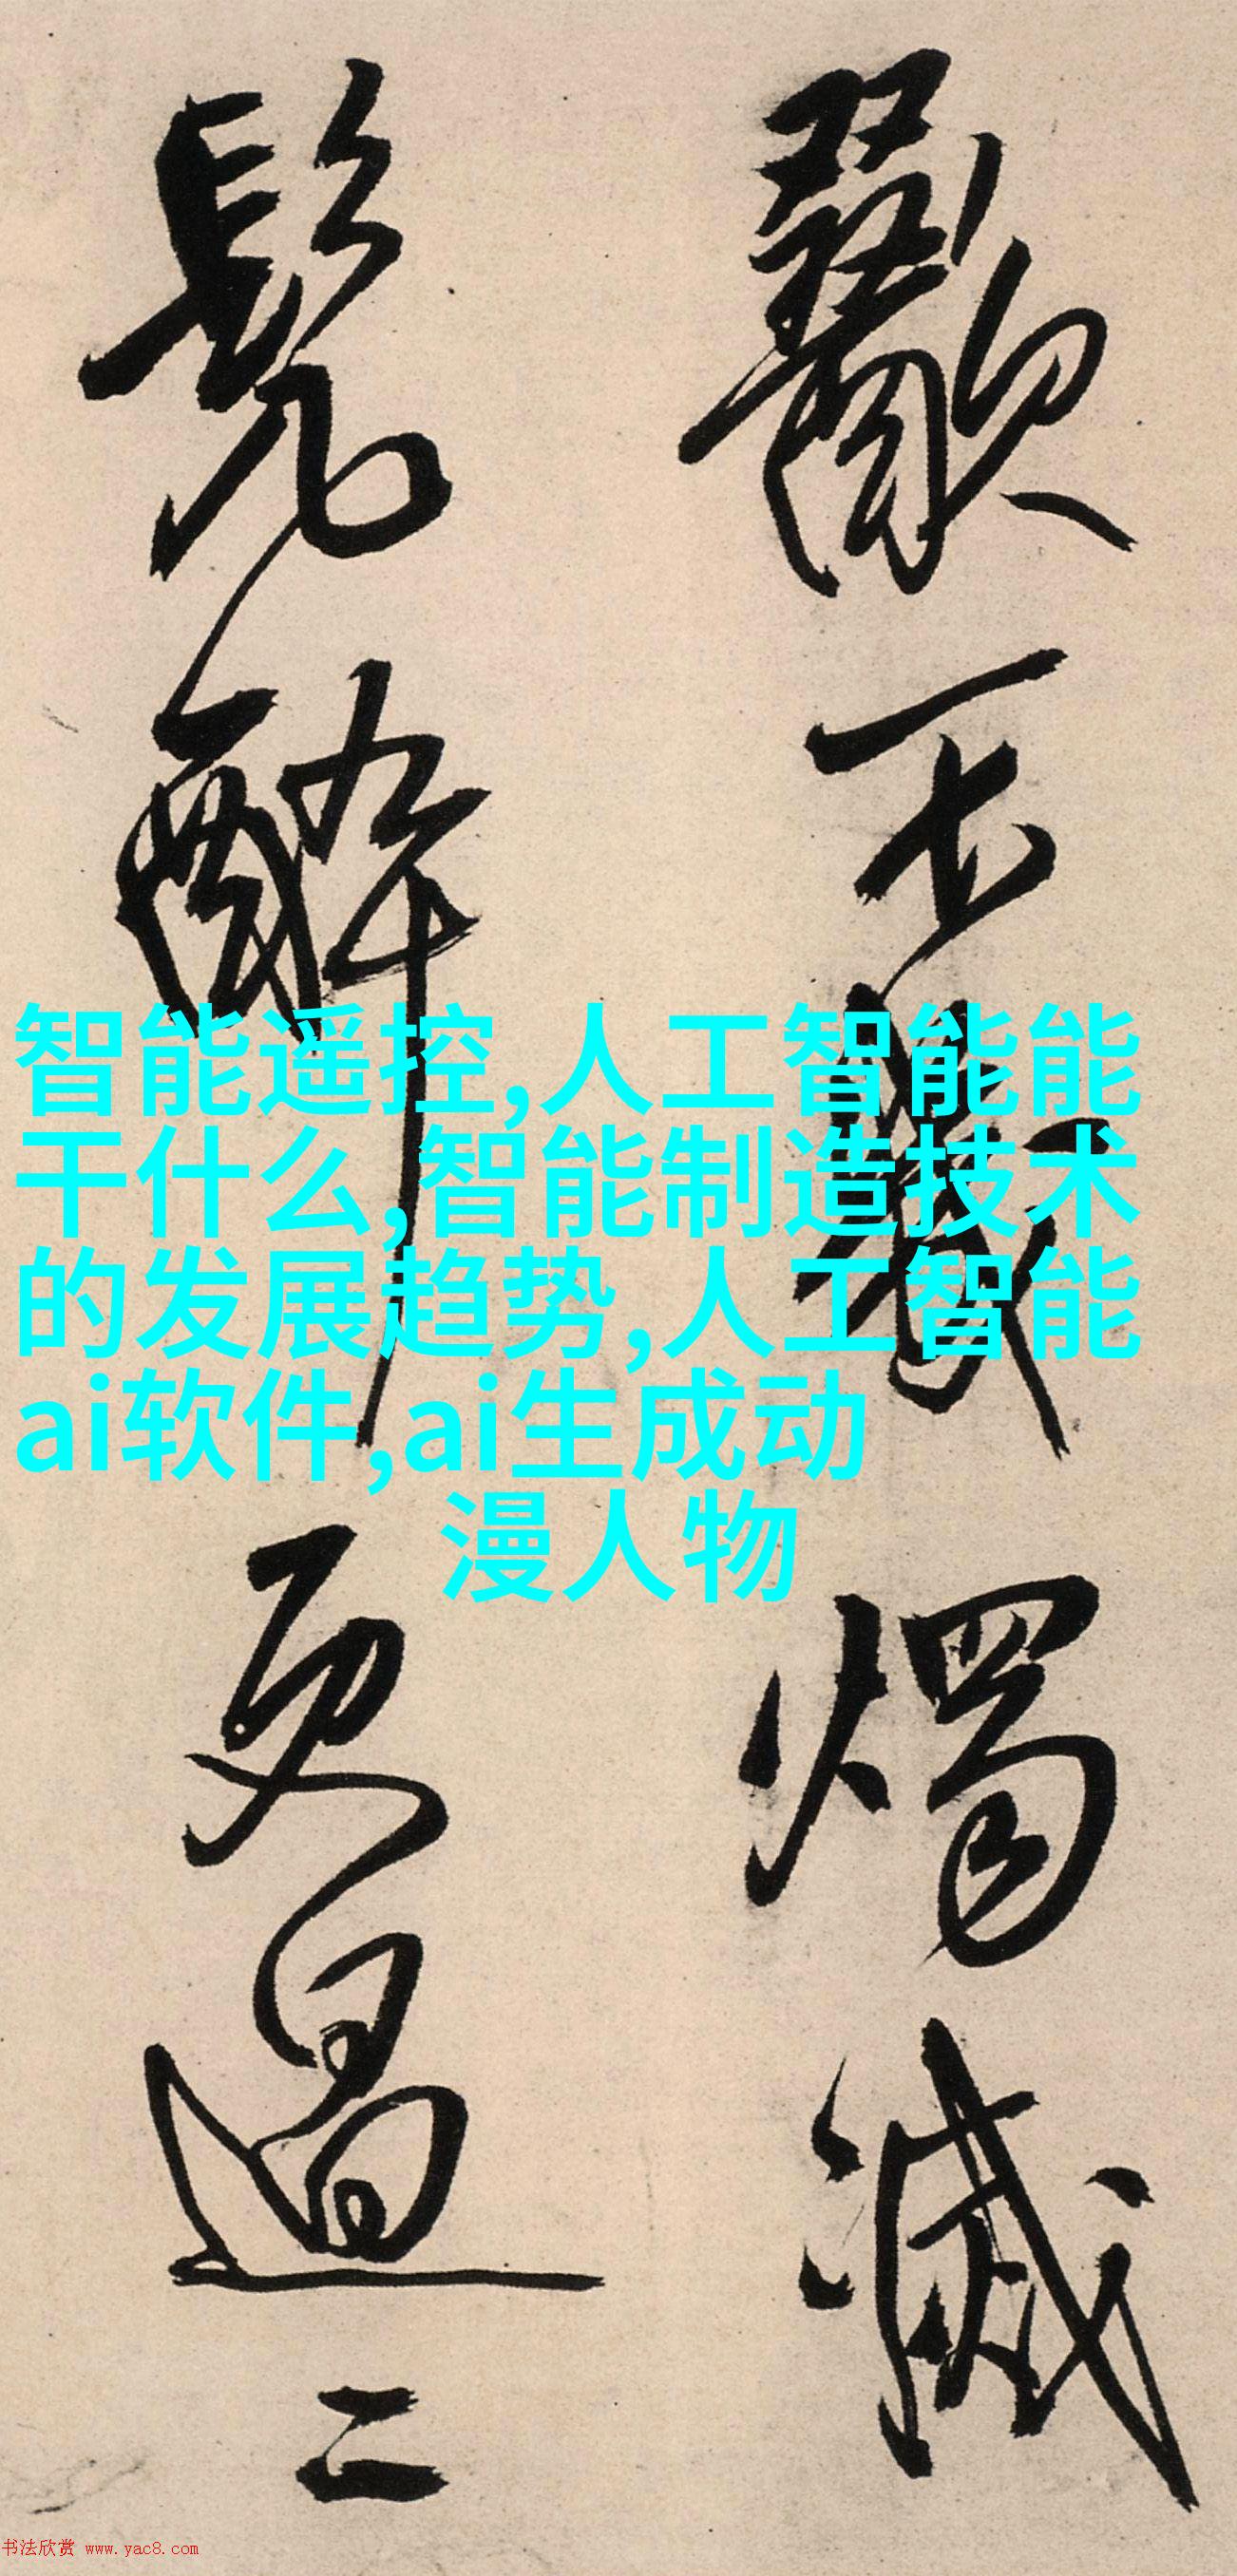 歠不識燭滅
鬓醉更過二
智能遥控,人工智能能
干什么,智能制造技术
的发展趋势,人工智能
ai软件,ai生成动
漫人物
书法欣赏 www.yac8.com